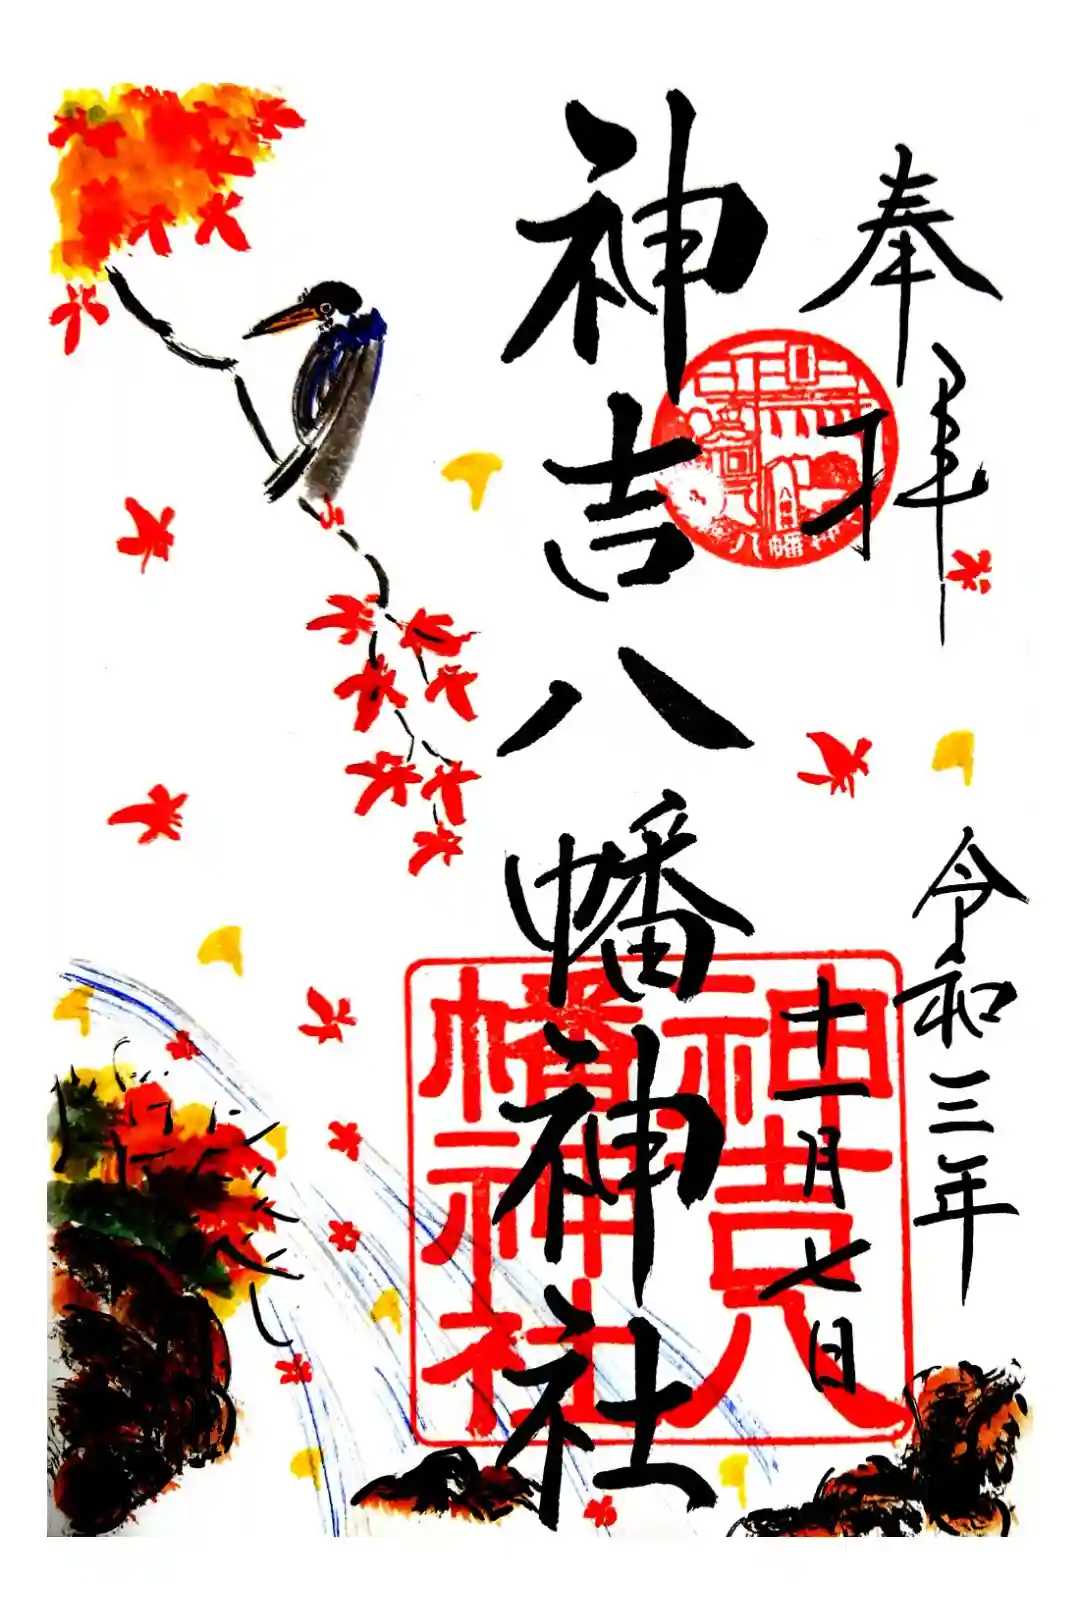 奉拝
令和三年
十一月七日
神吉八幡神社
八幡神
八幡
神吉八
幡神社